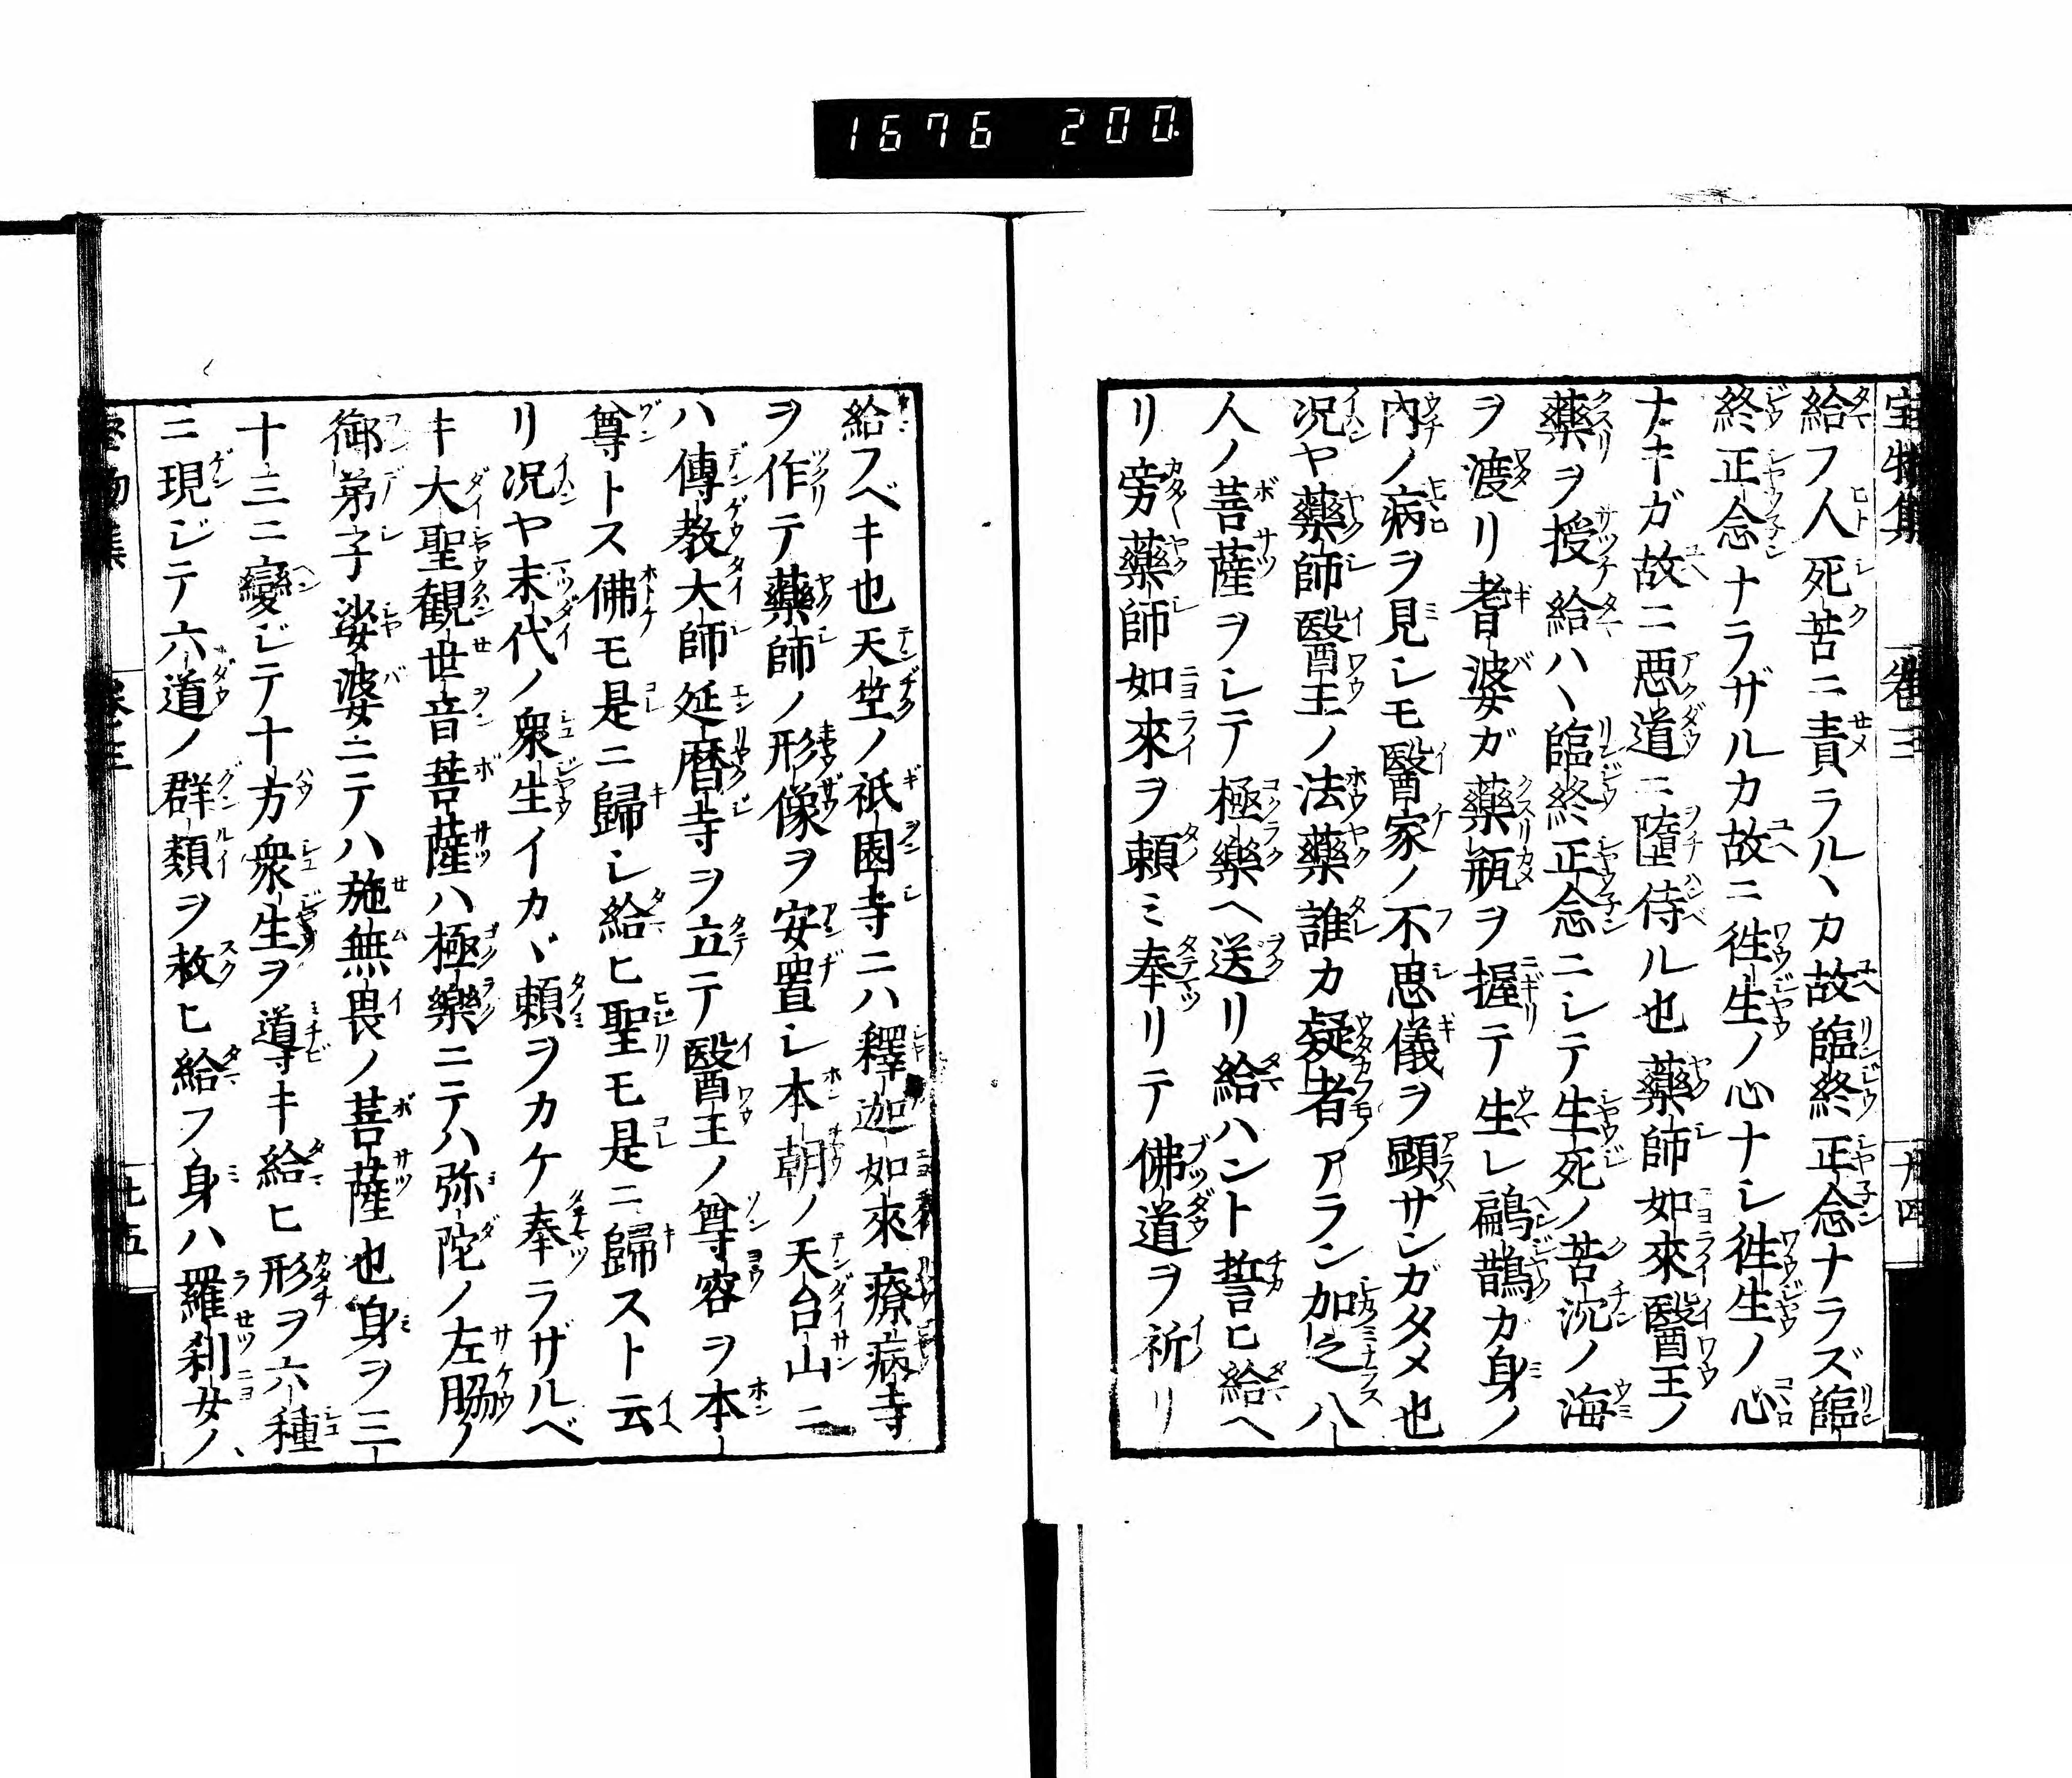 1676 200.
宝物集 巻三 十四
給フ人死苦ニ責ラルヽカ故臨終正念ナラズ臨
終正念ナラザルカ故ニ徃生ノ心ナシ徃生ノ心
ナキガ故ニ悪道ニ堕侍ル也藥師如來醫王ノ
藥ヲ授給ハヽ臨終正念ニシテ生死ノ苦沈ノ海
ヲ渡リ耆婆ガ藥瓶ヲ握テ生レ鶣鵲ガ身ノ
内ノ病ヲ見シモ醫家ノ不思儀ヲ顕サンガタメ也
况ヤ藥師醫王ノ法藥誰カ疑者アラン加之八
人ノ菩薩ヲシテ極樂ヘ送リ給ハント誓ヒ給ヘ
リ旁藥師如來ヲ頼ミ奉リテ佛道ヲ祈リ
給フベキ也天竺ノ祇園寺ニハ釋迦如來療病寺
ヲ作テ藥師ノ形像ヲ安置シ本朝ノ天台山ニ
ハ傳教大師延暦寺ヲ立テ醫王ノ尊容ヲ本
尊トス佛モ是ニ歸シ給ヒ聖モ是ニ歸スト云
リ况ヤ末代ノ衆生イカヾ頼ヲカケ奉ラザルベ
キ大聖観世音菩薩ハ極樂ニテハ弥陀ノ左脇ノ
御弟子娑婆ニテハ施無畏ノ菩薩也身ヲ三
十三ニ變ジテ十方衆生ヲ導キ給ヒ形ヲ六種
ニ現ジテ六道ノ群類ヲ救ヒ給フ身ハ羅刹女ノ